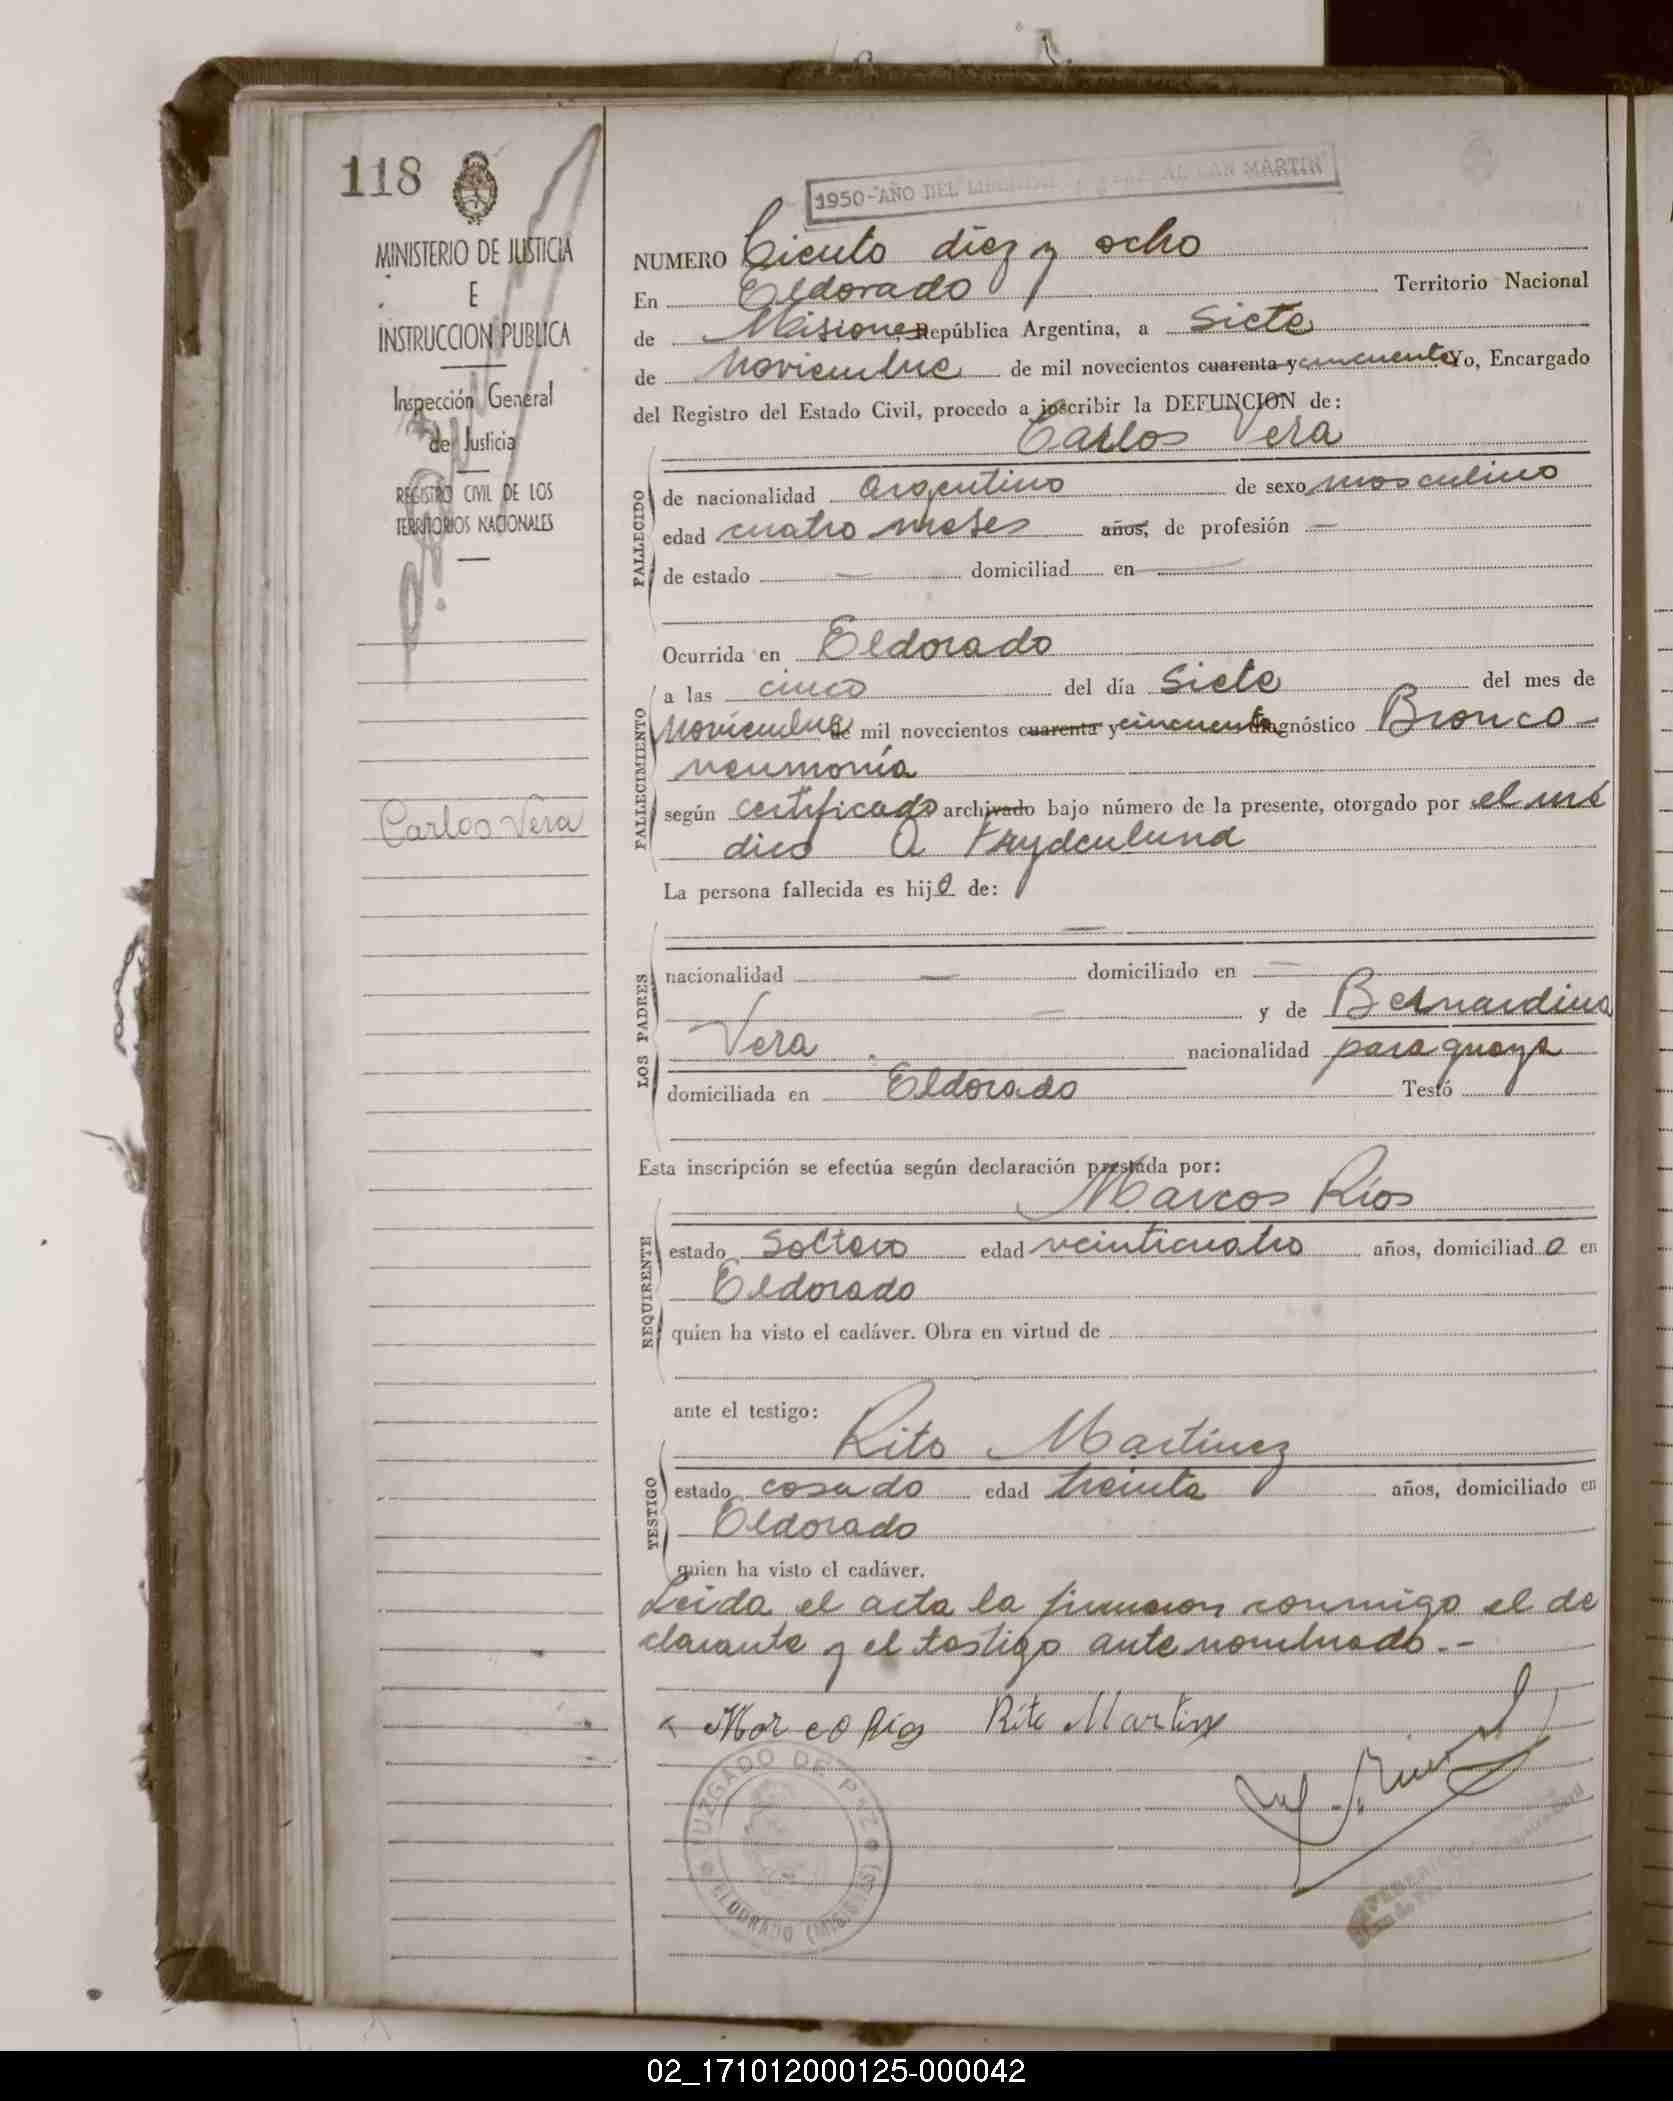 118
MINISTERIO DE JUSTICIA
E
INSTRUCCION PUBLICA
Inspección General
de Justicia
REGISTRO CIVIL DE LOS
TERRITORIOS NACIONALES
Carlos Vera
1950-AÑO DEL LIBERTADOR GENERAL SAN MARTIN
NUMERO Ciento diez y ocho
En Eldorado Territorio Nacional
de Misiones República Argentina, a siete
de noviembre de mil novecientos cuarenta y cincuenta Yo, Encargado
del Registro del Estado Civil, procedo a inscribir la DEFUNCION de:
Carlos Vera
FALLECIDO
de nacionalidad argentino de sexo masculino
edad cuatro meses años, de profesión —
de estado — domiciliad en —
Ocurrida en Eldorado
FALLECIMIENTO
a las cinco del día siete del mes de
noviembre de mil novecientos cuarenta y cincuenta diagnóstico Bronco-
neumonía
según certificado archivado bajo número de la presente, otorgado por el mé
dico O Frydenlund
La persona fallecida es hijo de:
—
LOS PADRES
nacionalidad — domiciliado en —
— y de Bernardina
Vera nacionalidad paraguaya
domiciliada en Eldorado Testó
Esta inscripción se efectúa según declaración prestada por:
Marcos Ríos
REQUIRENTE
estado soltero edad veinticuatro años, domiciliado en
Eldorado
quien ha visto el cadáver. Obra en virtud de
ante el testigo:
Rito Martínez
TESTIGO
estado casado edad treinta años, domiciliado en
Eldorado
quien ha visto el cadáver.
Leida el acta la firmaron conmigo el de
clarante y el testigo ante nombrado.-
Marco Rios Rito Martinz
JUZGADO DE PAZ
ELDORADO (MISIONES)
02_171012000125-000042